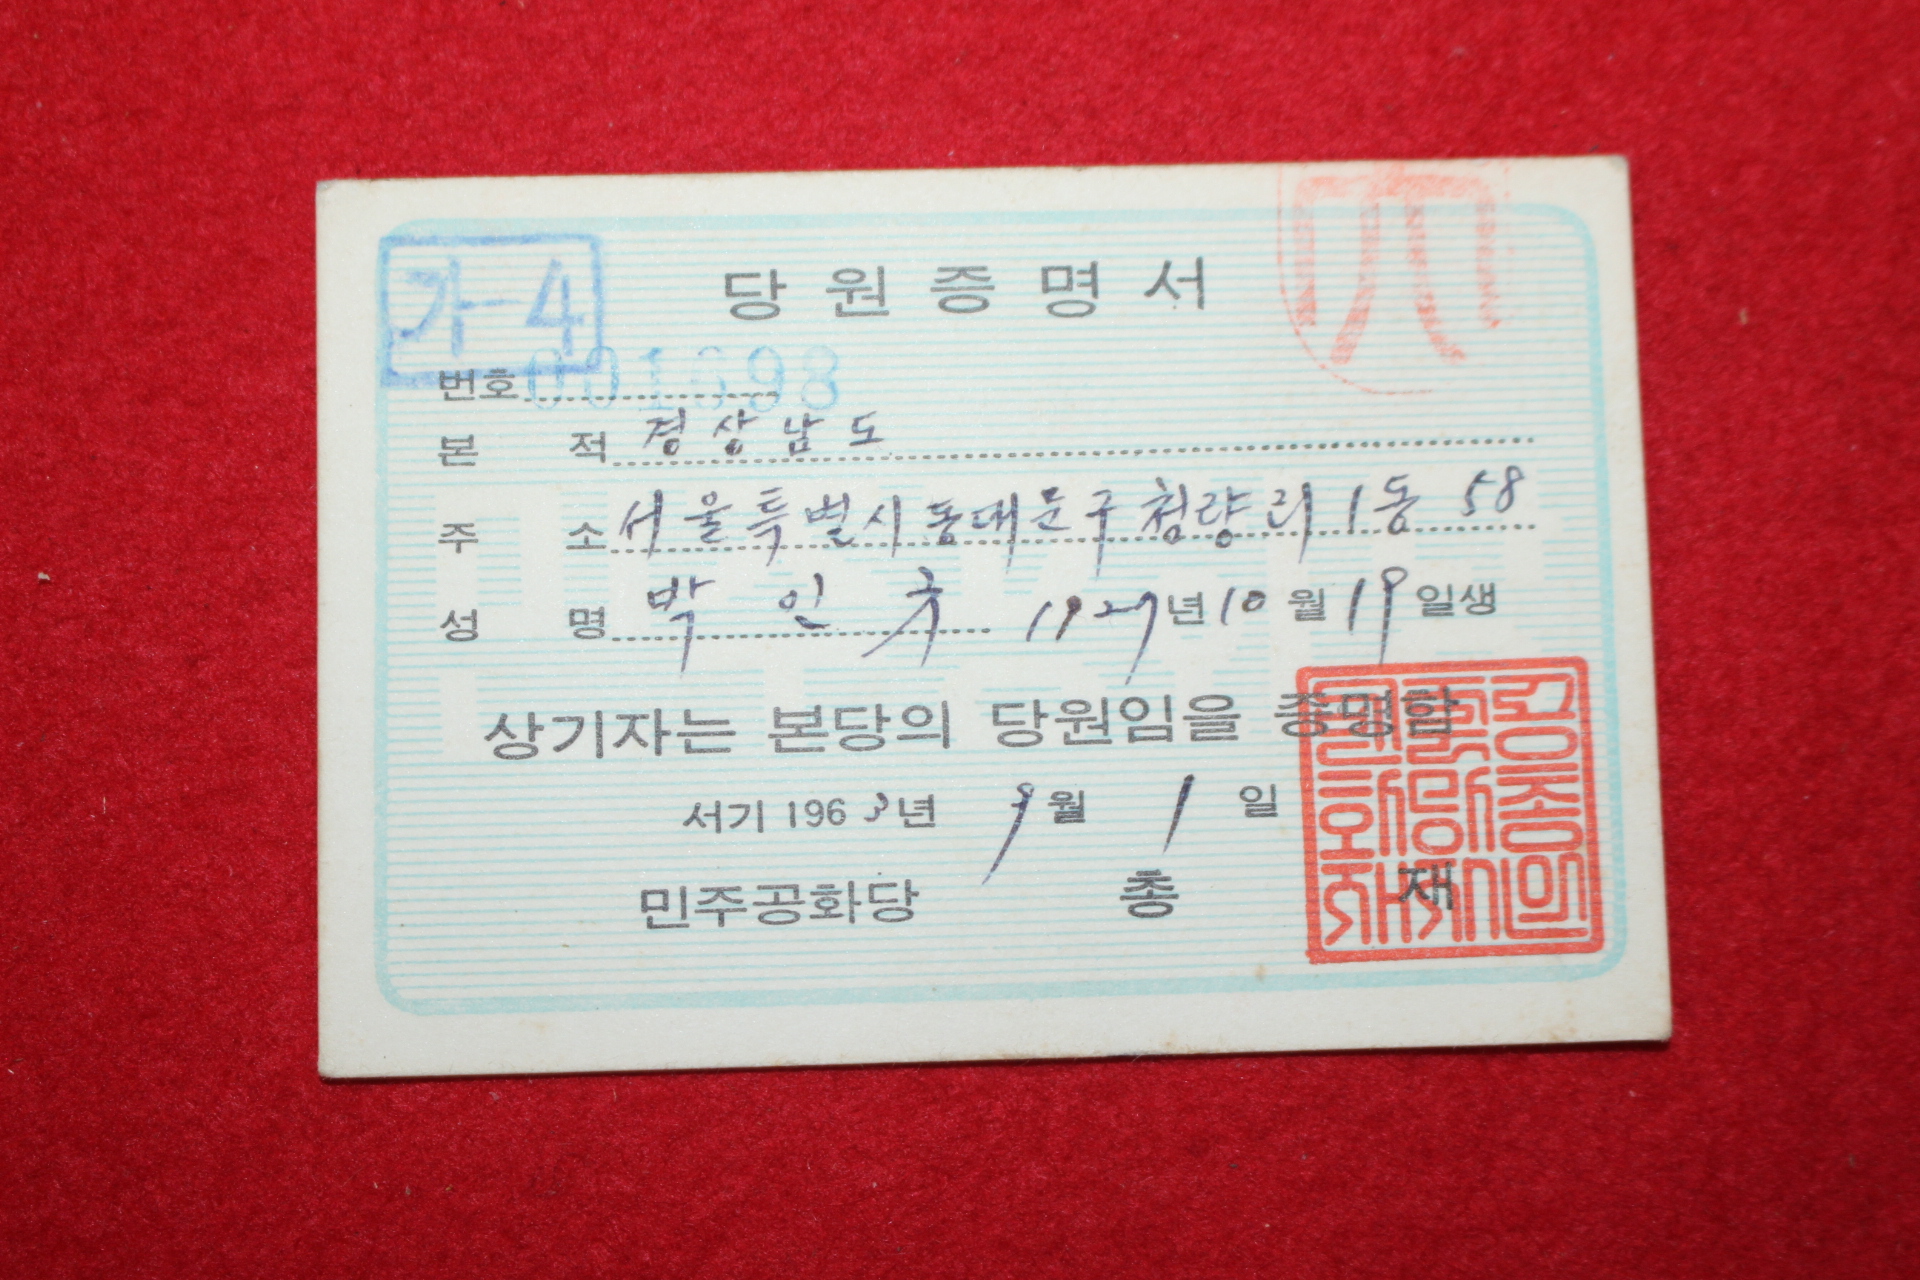 가-4
당원증명서
번호 001698
본적 경상남도
주소 서울특별시동대문구청량리1동 58
성명 박인규 1927년10월19일생
상기자는 본당의 당원임을 증명함
서기 1963년 9월 1일
민주공화당 총재